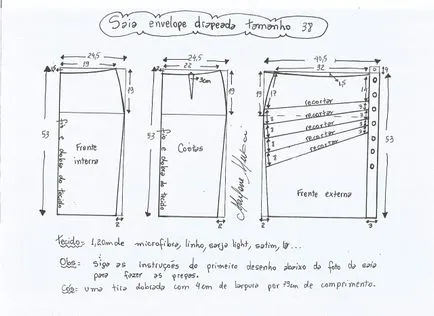 Saia envelope drapeada tamanho 38
24,5
19
19
53
Frente interna
fio e dobra do tecido
2
24,5
22
3cm
19
53
Costas
fio e dobra do tecido
2
40,5
32
1,5
17
19
recortar
recortar
recortar
recortar
recortar
8
8
8
8
3
3
3
53
Frente externa
2
3
Tecido: 1,20m de microfibra, linho, sarja light, satim, lã...
Obs: Siga as instruções do primeiro desenho abaixo da foto da saia
para fazer as pregas.
Cós: uma tira dobrada com 4cm de largura por 79cm de comprimento.